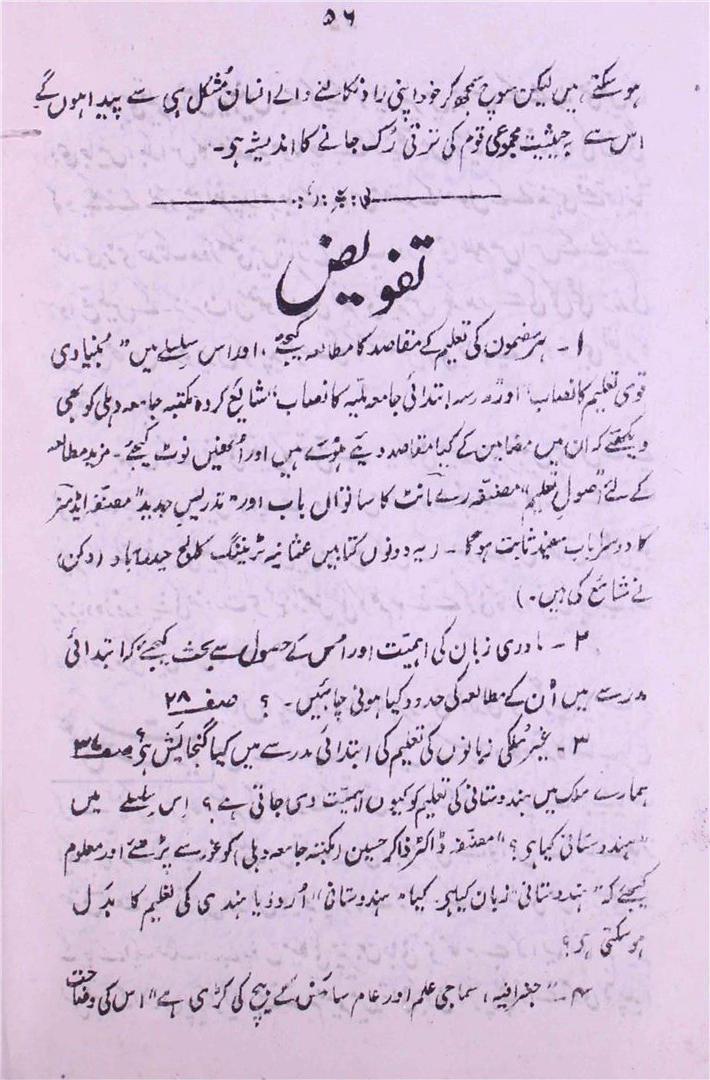 ۵۶
ہوسکتے ہیں لیکن سوچ سمجھ کر خود اپنی راہ نکالنے والے انسان مُشکل ہی سے پیدا ہوں گے
اس سے بہ حیثیت مجموعی قوم کی ترقی رُک جانے کا اندیشہ ہو۔
تفویض
۱ - ہر مضمون کی تعلیم کے مقاصد کا مطالعہ کیجیے، اور اس سِلسلے میں "بُنیادی
قومی تعلیم کا نصاب" اور "مدرسہ ابتدائی جامعہ ملیہ کا نصاب" شایع کردہ مکتبہ جامعہ دہلی کو بھی
دیکھئے کہ ان میں مضامین کے کیا مقاصد دیئے ہوئے ہیں اور اُنھیں نوٹ کیجیے۔ مزید مطالعہ
کے لئے "اصولِ تعلیم" مصنفہ رے مانٹ کا ساتواں باب اور "تدریسِ جدید" مصنفہ ایڈمز
کا دوسرا باب مفید ثابت ہوگا۔ (یہ دونوں کتابیں عثمانیہ ٹریننگ کالج حیدرآباد (دکن)
نے شائع کی ہیں۔)
۲ - مادری زبان کی اہمیّت اور اُس کے حصول سے بحث کیجیے کہ ابتدائی
مدرسے میں اُن کے مطالعہ کی حدود کیا ہونی چاہئیں۔ ؟ صفہ ۲۸
۳ - غیر مُلکی زبانوں کی تعلیم کی ابتدائی مدرسے میں کیا گنجایش ہی؟ صفہ ۳۷
ہمارے ملک میں ہندوستانی کی تعلیم کو کیوں اہمیّت دی جاتی ہے؟ اِس سِلسلے میں
"ہندوستانی کیا ہی؟" مصنفہ ڈاکٹر ذاکر حسین (مکتبہ جامعہ دہلی) کو غور سے پڑھئے اور معلوم
کیجئے کہ "ہندوستانی" زبان کیا ہی۔ کیا "ہندوستانی" اُردو یا ہندی کی تعلیم کا بدل
ہوسکتی ہی؟
۴ - "جغرافیہ، سماجی علم اور عام سائنس کے بیچ کی کڑی ہے" اس کی وضاحت